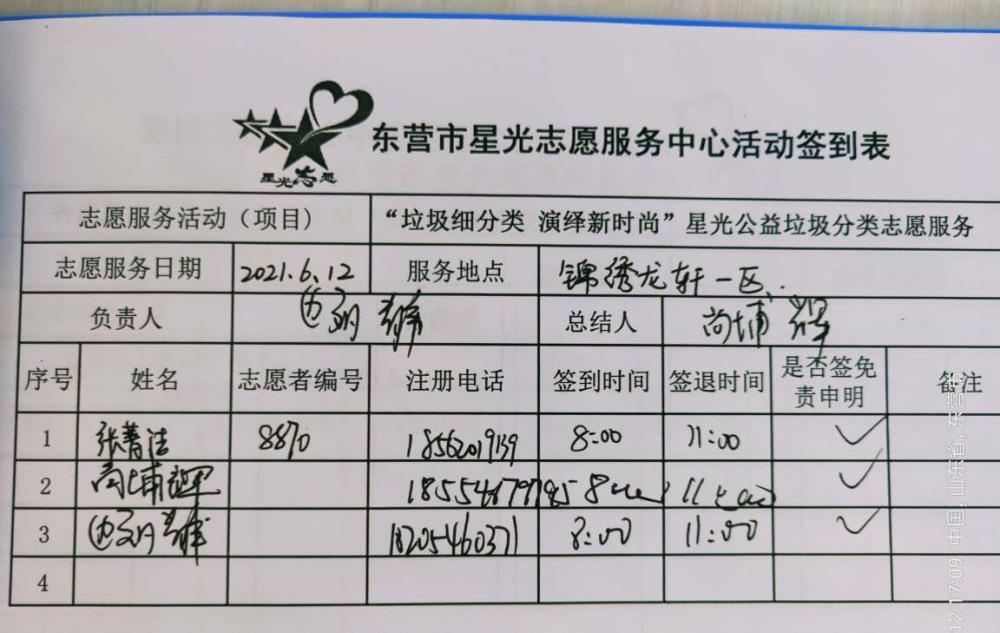 星光志愿
东营市星光志愿服务中心活动签到表
志愿服务活动（项目） “垃圾细分类 演绎新时尚”星光公益垃圾分类志愿服务
志愿服务日期 2021.6.12 服务地点 锦绣龙轩一区
负责人 总结人 尚埔
序号 姓名 志愿者编号 注册电话 签到时间 签退时间 是否签免责申明 备注
1 张菁洁 8870 18562019139 8:00 11:00
2 尚埔 8:00 11:00
3 18205460371 8:00 11:00
4
12 17:09 中国, 山东省, 东营市